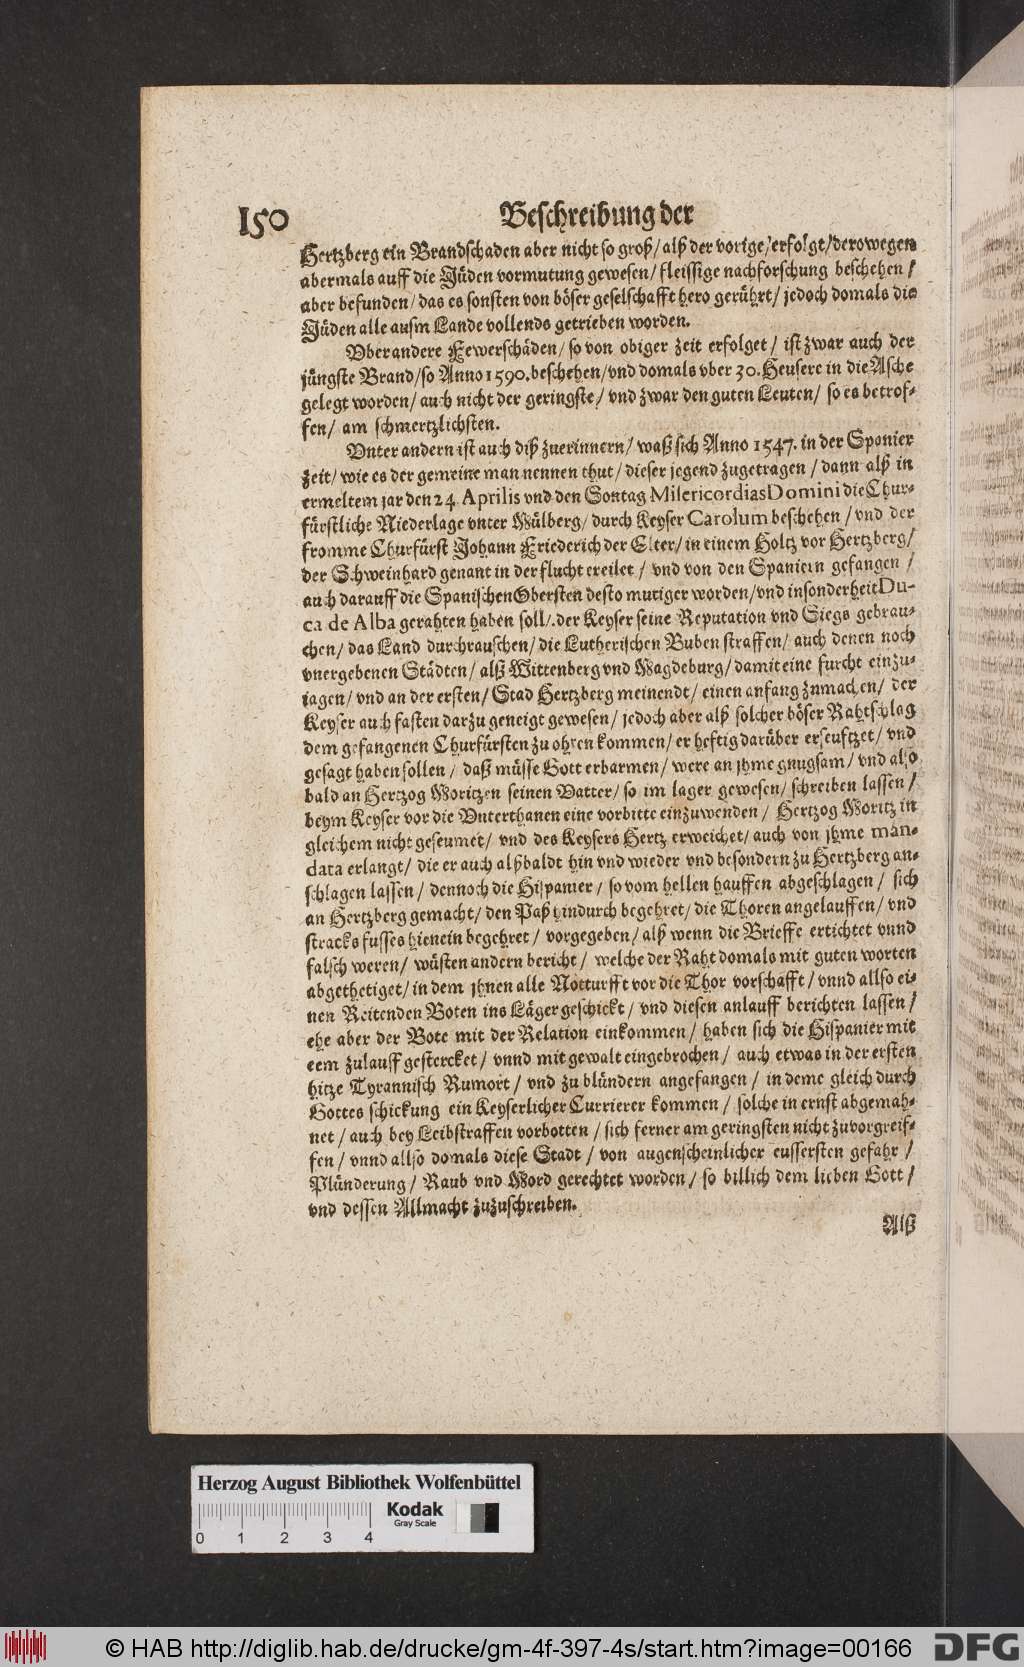 150
Beschreibung der
Hertzberg ein Brandschaden aber nicht so groß/ alß der vorige/ erfolgt/ derowegen
abermals auff die Jüden vormutung gewesen/ fleissige nachforschung beschehen/
aber befunden/ das es sonsten von böser geselschafft hero gerührt/ jedoch domals die
Jüden alle ausm Lande vollends getrieben worden.
Vber andere Fewerschäden/ so von obiger zeit erfolget/ ist zwar auch der
jüngste Brand/ so Anno 1590. beschehen/ vnd domals vber 30. Heusere in die Asche
gelegt worden/ auch nicht der geringste/ vnd zwar den guten Leuten/ so es betrof-
fen/ am schmertzlichsten.
Vnter andern ist auch diß zuerinnern/ waß sich Anno 1547. in der Spanier
zeit/ wie es der gemeine man nennen thut/ dieser jegend zugetragen/ dann alß in
ermeltem jar den 24 Aprilis vnd den Sontag Misericordias Domini die Chur-
fürstliche Niederlage vnter Mülberg/ durch Keyser Carolum beschehen/ vnd der
fromme Churfürst Johann Friederich der Elter/ in einem Holtz vor Hertzberg/
der Schweinhard genant in der flucht ereilet/ vnd von den Spaniern gefangen/
auch darauff die Spanischen Obersten desto mutiger worden/ vnd insonderheit Du-
ca de Alba gerahten haben soll/. der Keyser seine Reputation vnd Siegs gebrau-
chen/ das Land durchrauschen/ die Lutherischen Buben straffen/ auch denen noch
vnergebenen Städten/ alß Wittenberg vnd Magdeburg/ damit eine furcht einzu-
jagen/ vnd an der ersten/ Stad Hertzberg meinendt/ einen anfang zumachen/ der
Keyser auch fasten darzu geneigt gewesen/ jedoch aber alß solcher böser Rahtschlag
dem gefangenen Churfürsten zu ohren kommen/ er heftig darüber erseuftzet/ vnd
gesagt haben sollen/ daß müsse Gott erbarmen/ were an jhme gnugsam/ vnd also
bald an Hertzog Moritzen seinen Vatter/ so im lager gewesen/ schreiben lassen/
beym Keyser vor die Vnterthanen eine vorbitte einzuwenden/ Hertzog Moritz in
gleichem nicht geseumet/ vnd des Keysers Hertz erweichet/ auch von jhme man-
data erlangt/ die er auch alßbaldt hin vnd wieder vnd besondern zu Hertzberg an-
schlagen lassen/ dennoch die Hispanier/ so vom hellen hauffen abgeschlagen/ sich
an Hertzberg gemacht/ den Paß hindurch begehret/ die Thoren angelauffen/ vnd
stracks fusses hienein begehret/ vorgegeben/ alß wenn die Brieffe ertichtet vnnd
falsch weren/ wüsten andern bericht/ welche der Raht domals mit guten worten
abgethetiget/ in dem jhnen alle Notturfft vor die Thor vorschafft/ vnnd allso ei-
nen Reitenden Boten ins Läger geschickt/ vnd diesen anlauff berichten lassen/
ehe aber der Bote mit der Relation einkommen/ haben sich die Hispanier mit
eem zulauff gestercket/ vnnd mit gewalt eingebrochen/ auch etwas in der ersten
hitze Tyrannisch Rumort/ vnd zu blündern angefangen/ in deme gleich durch
Gottes schickung ein Keyserlicher Currierer kommen/ solche in ernst abgemah-
net/ auch bey Leibstraffen vorbotten/ sich ferner am geringsten nicht zuvorgreif-
fen/ vnnd allso domals diese Stadt/ von augenscheinlicher eussersten gefahr/
Plünderung/ Raub vnd Mord gerechtet worden/ so billich dem lieben Gott/
vnd dessen Allmacht zuzuschreiben.
Alß
Herzog August Bibliothek Wolfenbüttel
Kodak
Gray Scale
0 1 2 3 4
© HAB http://diglib.hab.de/drucke/gm-4f-397-4s/start.htm?image=00166
DFG